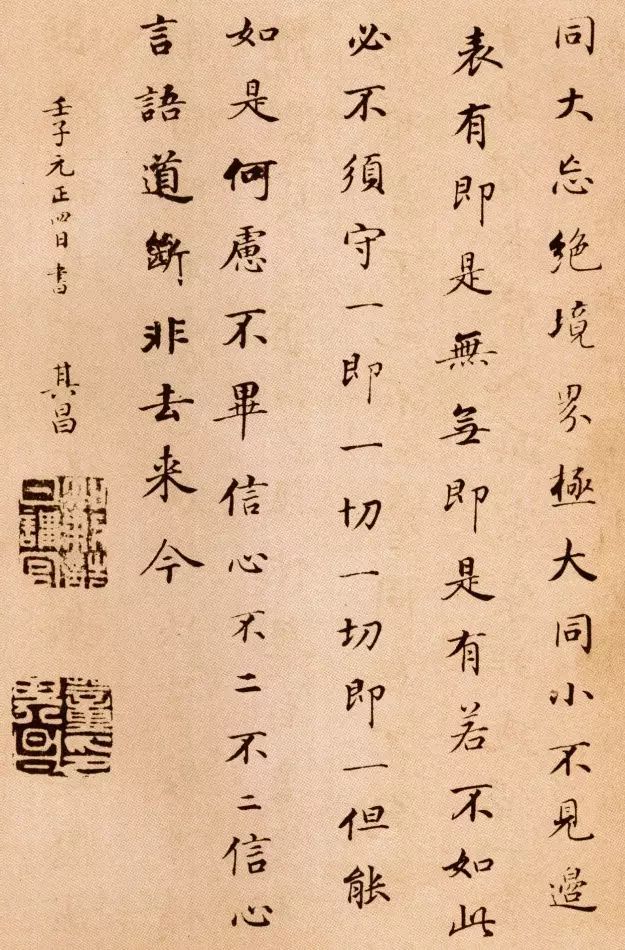 同大忘絶境界極大同小不見邉
表有即是無無即是有若不如此
必不須守一即一切一切即一但能
如是何慮不畢信心不二不二信心
言語道斷非去来今
壬子元正四日書 其昌